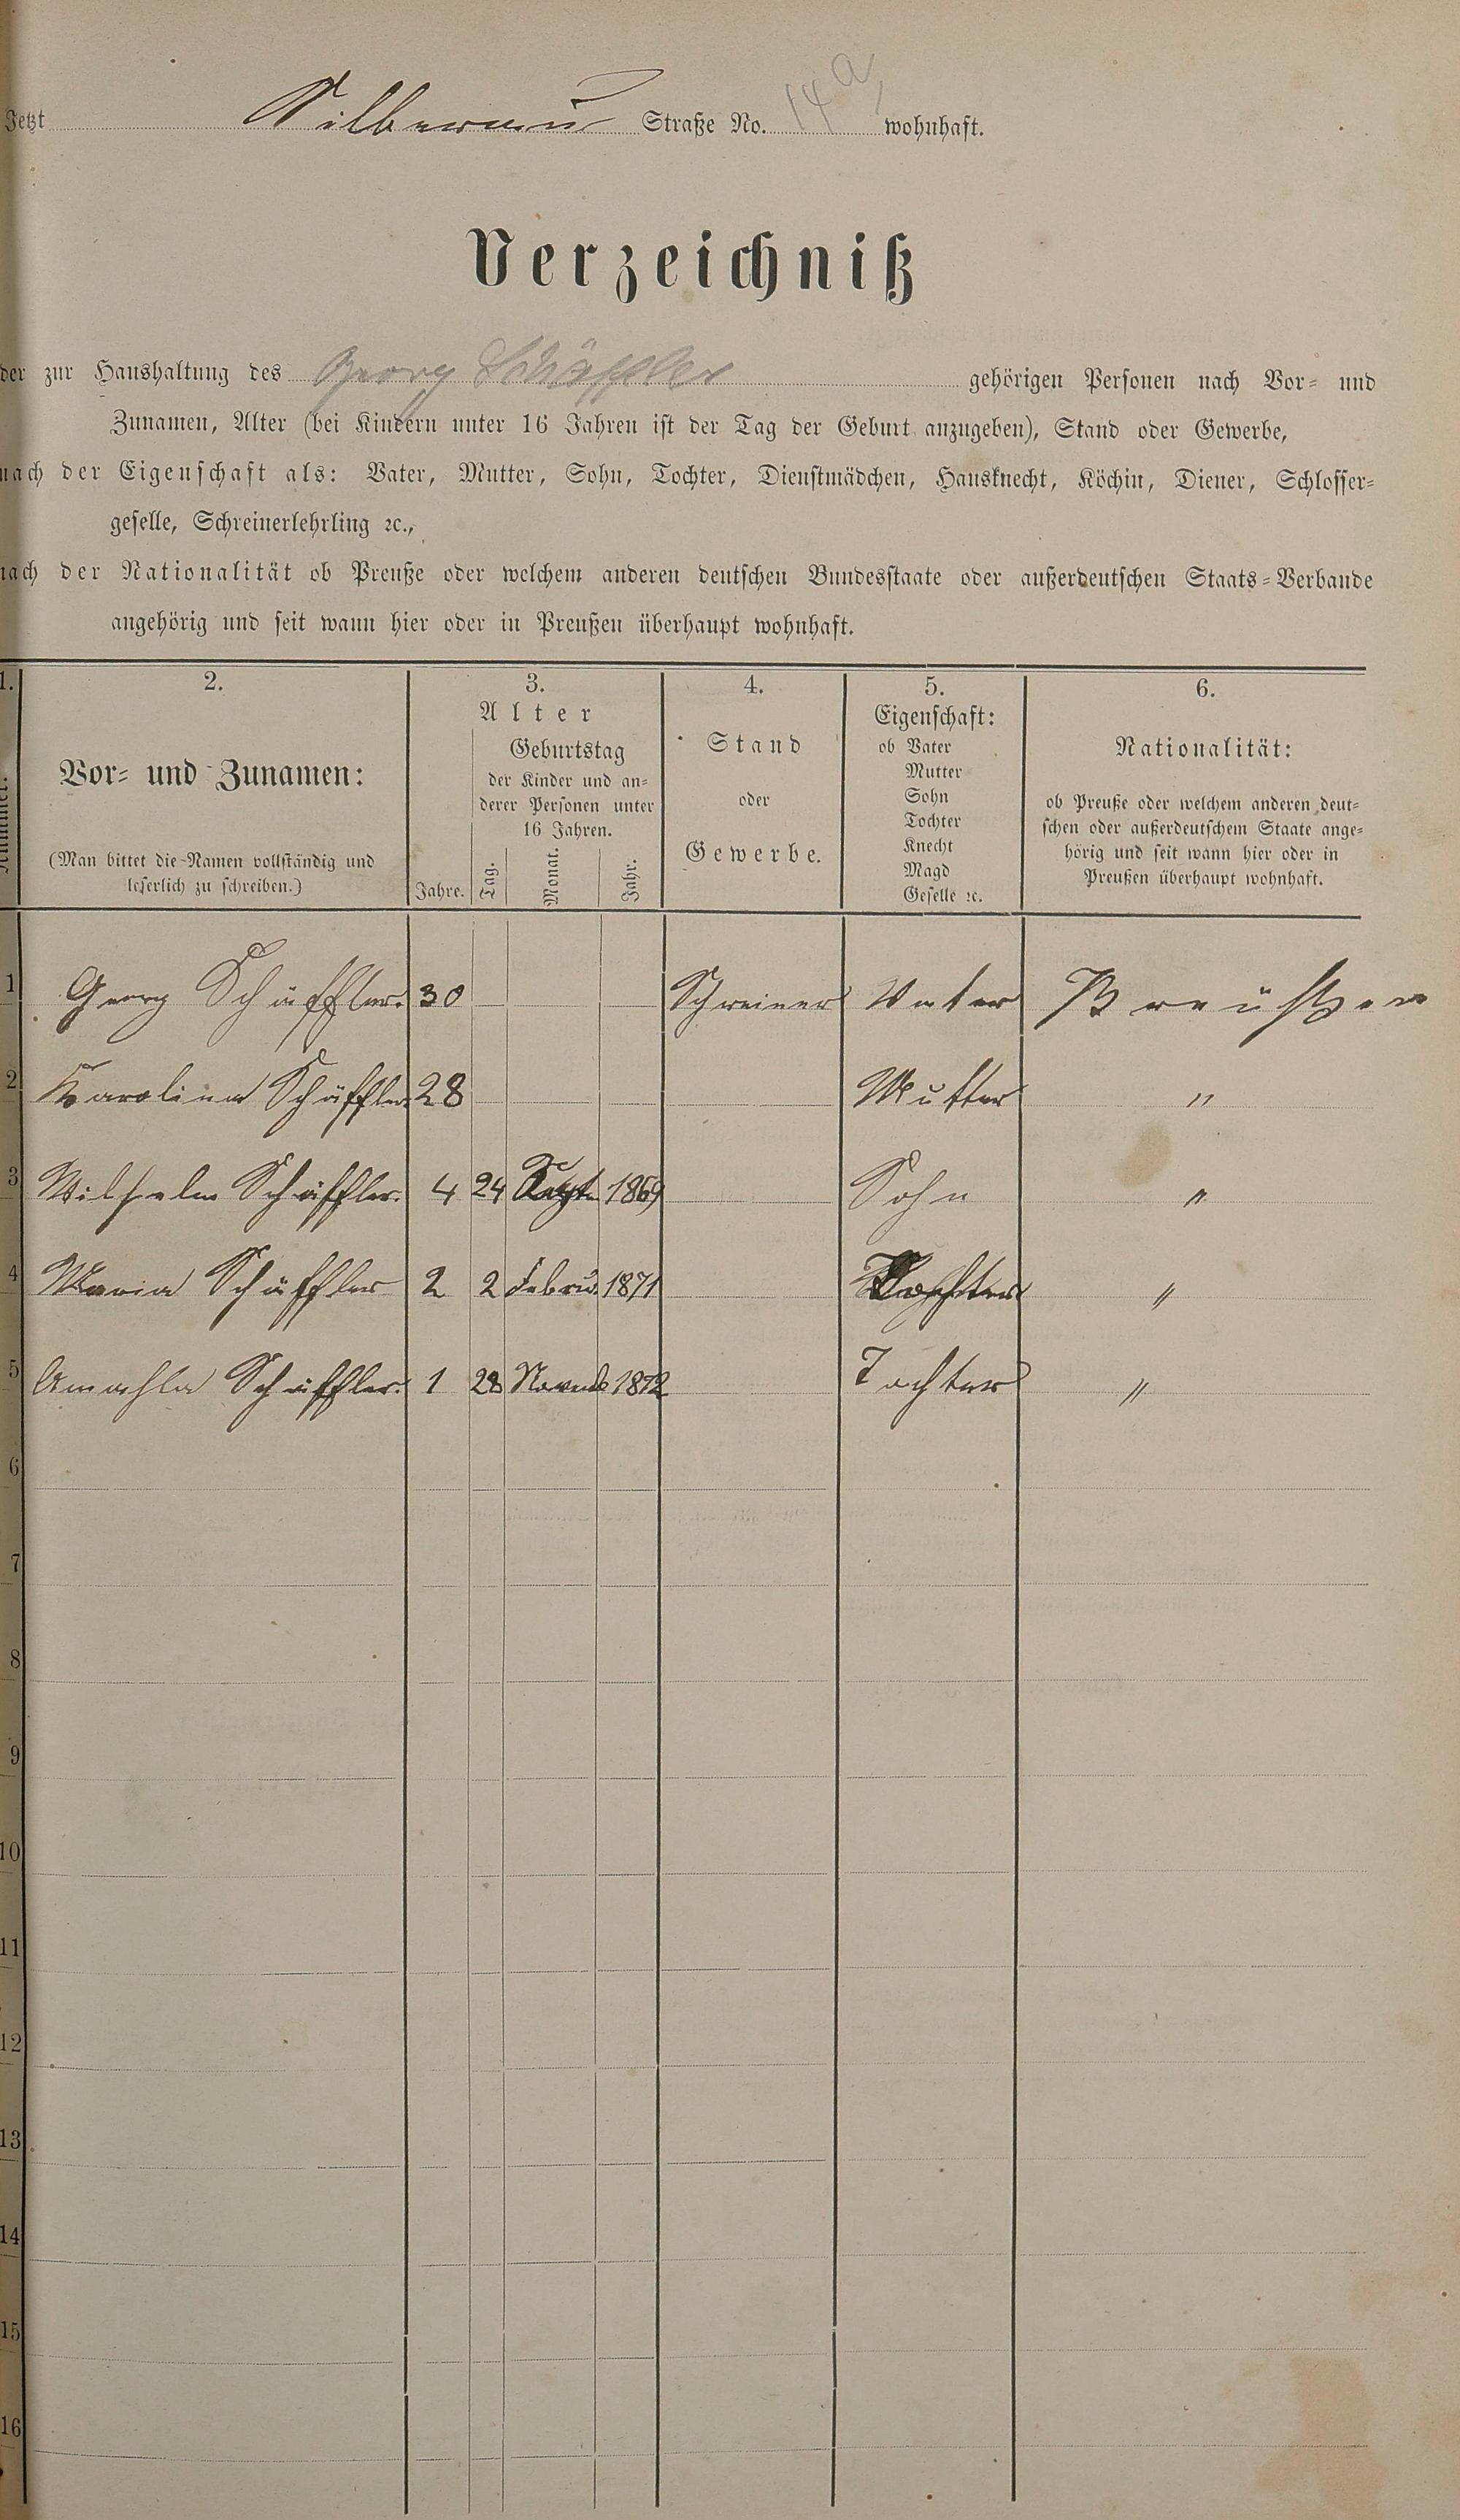 Jetzt Silberau Straße No. 14 a, wohnhaft.
Verzeichniß
der zur Haushaltung des Georg Schäffler gehörigen Personen nach Vor- und
Zunamen, Alter (bei Kindern unter 16 Jahren ist der Tag der Geburt anzugeben), Stand oder Gewerbe,
nach der Eigenschaft als: Vater, Mutter, Sohn, Tochter, Dienstmädchen, Hausknecht, Köchin, Diener, Schlosser-
geselle, Schreinerlehrling ꝛc.,
nach der Nationalität ob Preuße oder welchem anderen deutschen Bundesstaate oder außerdeutschen Staats-Verbande
angehörig und seit wann hier oder in Preußen überhaupt wohnhaft.
1.
Nummer.
2.
Vor- und Zunamen:
(Man bittet die Namen vollständig und
leserlich zu schreiben.)
3.
Alter
Jahre.
Geburtstag
der Kinder und an-
derer Personen unter
16 Jahren.
Tag.
Monat.
Jahr.
4.
Stand
oder
Gewerbe.
5.
Eigenschaft:
ob Vater
Mutter
Sohn
Tochter
Knecht
Magd
Geselle ꝛc.
6.
Nationalität:
ob Preuße oder welchem anderen deut-
schen oder außerdeutschem Staate ange-
hörig und seit wann hier oder in
Preußen überhaupt wohnhaft.
1 Georg Schäffler. 30 Schreiner Vater Preußen
2 Karolina Schäffler 28 Mutter "
3 Wilhelm Schäffler. 4 24 1869 Sohn "
4 Maria Schäffler 2 2 Febru. 1871 Tochter "
5 Amahla Schäffler. 1 28 Novemb 1872 Tochter "
6
7
8
9
10
11
12
13
14
15
16